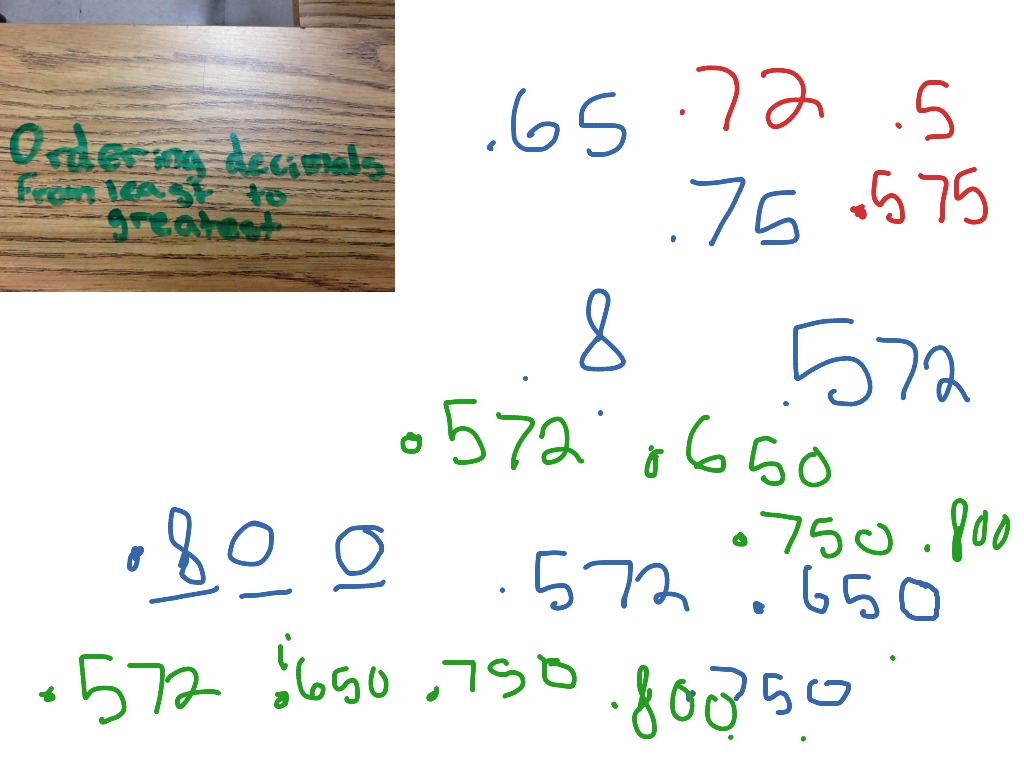 Ordering decimals
From least to
greatest
.65 .72 .5
.75 .575
.8 .572
.572 .650
.750 .800
.800 .572 .650
.572 .650 .750 .800 .750